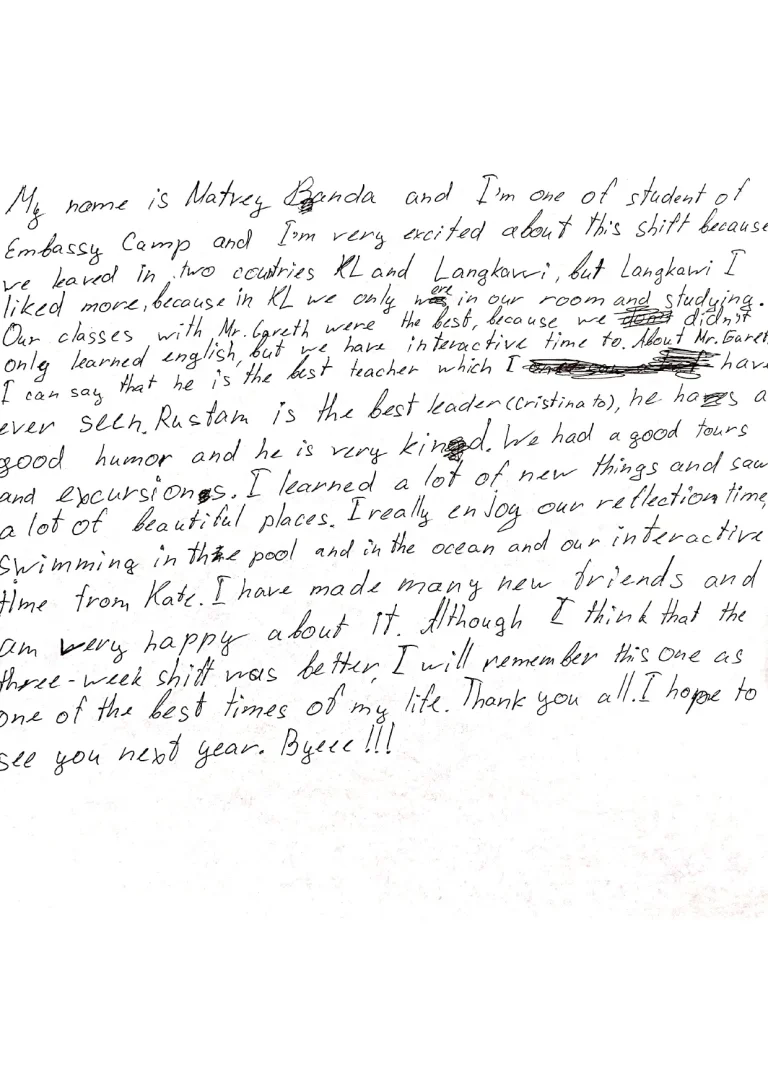 My name is Matvey Banda and I'm one of student of
Embassy Camp and I'm very excited about this shift because
we leaved in two countries KL and Langkawi, but Langkawi I
liked more, because in KL we only were in our room and studying.
Our classes with Mr. Gareth were the best, because we didn't
only learned english, but we have interactive time to. About Mr. Garet
I can say that he is the best teacher which I have
ever seen. Rustam is the best leader (Cristina to), he has a
good humor and he is very kind. We had a good tours
and excursions. I learned a lot of new things and saw
a lot of beautiful places. I really enjoy our reflection time,
swimming in the pool and in the ocean and our interactive
time from Kate. I have made many new friends and
am very happy about it. Although I think that the
three-week shift was better, I will remember this one as
one of the best times of my life. Thank you all. I hope to
see you next year. Byeee !!!